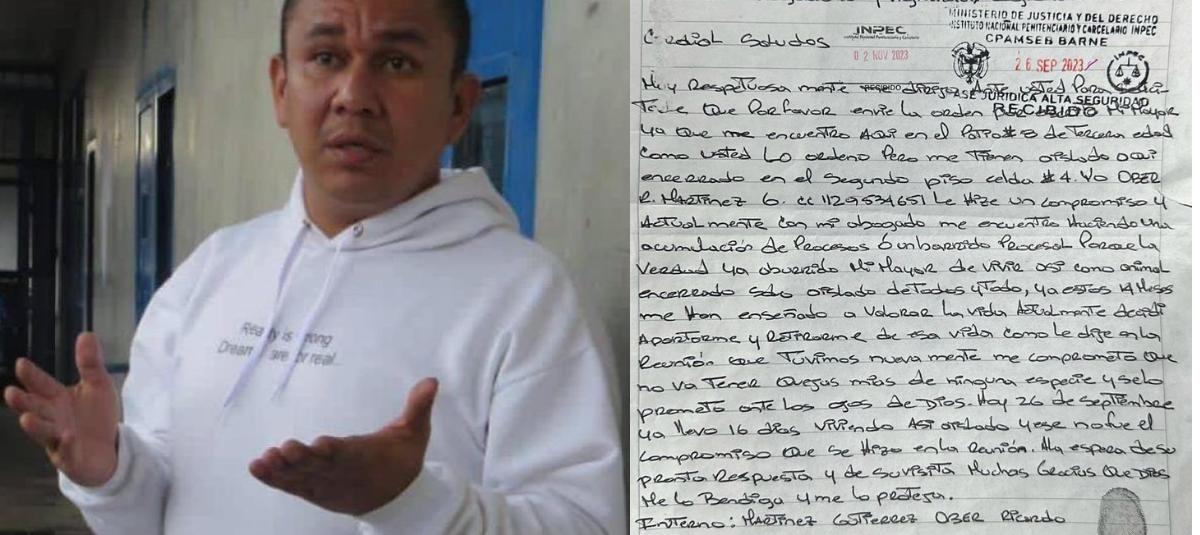 Reality is wrong
Dreams are for real...
MINISTERIO DE JUSTICIA Y DEL DERECHO
INSTITUTO NACIONAL PENITENCIARIO Y CARCELARIO INPEC
CPAMSEB BARNE
INPEC
02 NOV 2023
26 SEP 2023
INPEC
ASE JURÍDICA ALTA SEGURIDAD
RECIBIDO
Cordial Saludos
Muy Respetuosa mente dirijo Ante usted Para
que Por favor envie la orden Mi Mayor
ya que me encuentro AQui en el Patio #8 de Tercera edad
como usted Lo ordeno Pero me Tienen aislado aqui
encerrado en el Segundo piso celda #4. Yo OBER
R. MARTINEZ G. cc 1129534651 Le Hize un compromiso y
Actualmente con mi abogado me encuentro Haciendo una
acumulación de Procesos ó un barrido Procesal Para la
Verdad ya aburrido Mi Mayor de vivir asi como animal
encerrado solo aislado de Todos y Todo, ya estos 14 Meses
me Han enseñado a Valorar la vida Actualmente decidi
Apartarme y Retirarme de esa vida como le dije en la
Reunión que Tuvimos nueva mente me comprometo que
no va Tener Quejas mias de ninguna especie y se lo
prometo ante los ojos de Dios. Hoy 26 de Septiembre
ya llevo 16 dias viviendo Asi aislado y ese no fue el
compromiso que se Hizo en la Reunión. A la espera de su
pronta Respuesta y de su visita Muchas Gracias Que Dios
Me Lo Bendiga y me lo proteja.
Interno: MARTINEZ GUTIERREZ OBER Ricardo